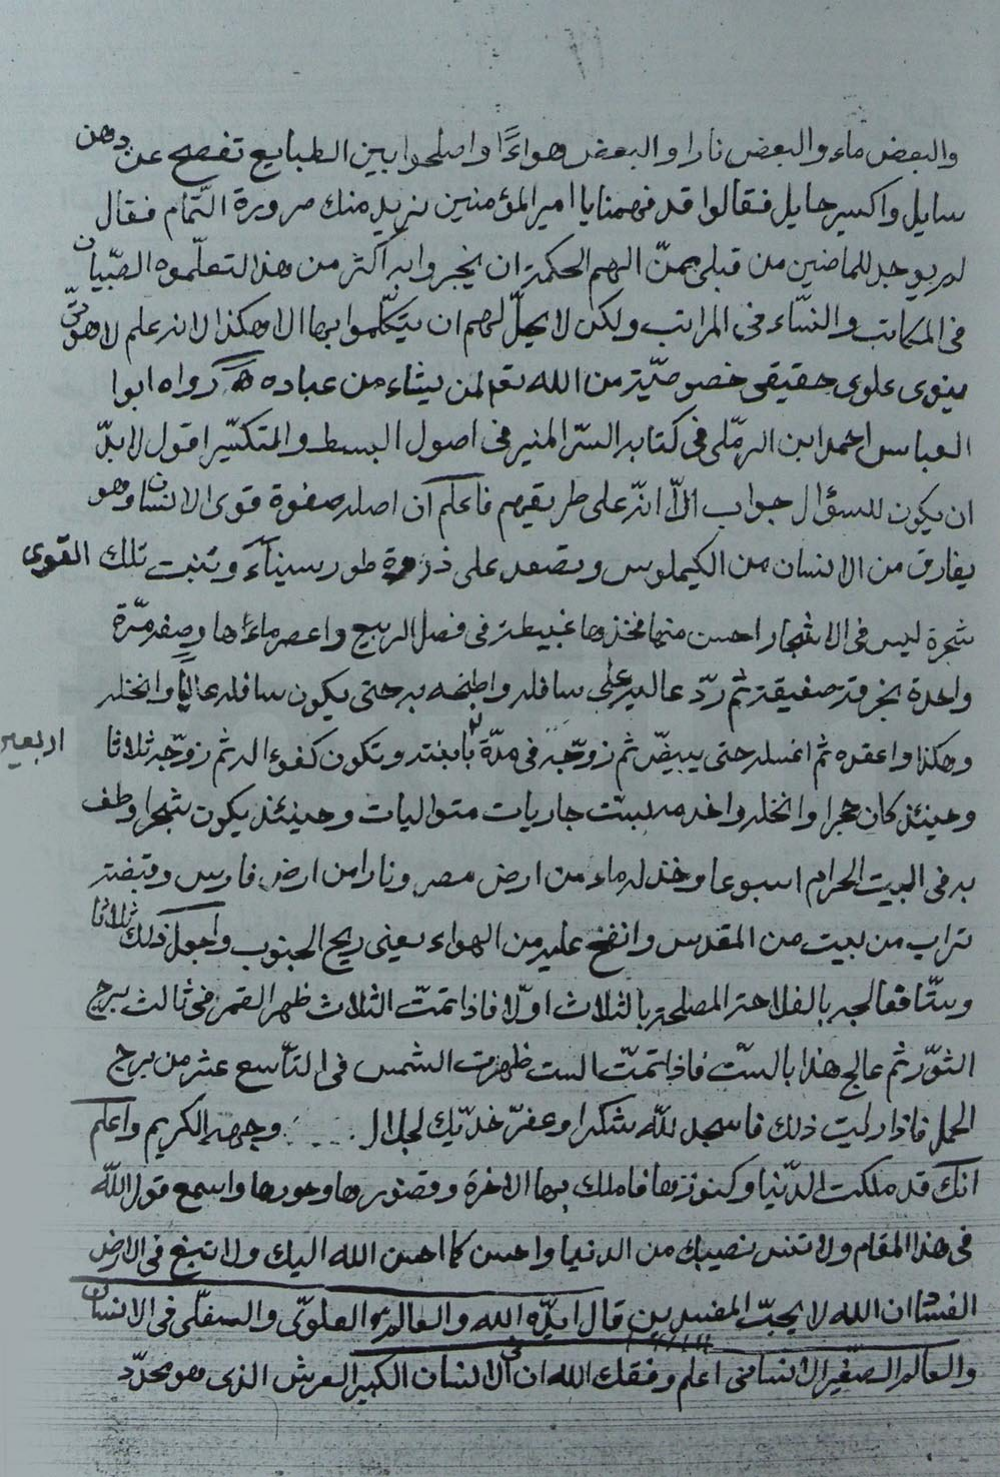 والبعض ماء والبعض نارا والبعض هواءً واصلحوا بين الطبايع تفصح عن دهن
سايل واكسير حايل فقالوا قد فهمنا يا امير المؤمنين نريد منك صرورة التّمام فقال
لم يوجد للماضين من قبلي ممّن الهم الحكمة ان يخبروا به اكثر من هذا لتعلّموه الصّبيان
في المكاتب والنّساء في المراتب ولكن لا يحلّ لهم ان يتكلّموا بها الا هكذا لانه علم لاهوتيّ
نبوى علوى حقيقى خصوصيّة من الله تعم لمن يشاء من عباده رواه ابوا
العباس احمد ابن الرمّلى فى كتابه السّر المنير فى اصول البسط والتكسّير اقول لا بدّ
ان يكون للسؤال جواب الّا انّه على طريقهم فاعلم ان اصله صفوة قوى الانسان وهو
يفارق من الانسان من الكيملوس وتصعد على ذروة طور سيناء وتنبت تلك القوى
شجرة ليس فى الاشجار احسن منها فخذوها غبيطة فى فصل الربيع واعصر ماءها وصفه مرّة
واحدة بخرقة صفيقة ثم ردّ عاليه على سافله واطبخه به حتى يكون سافله عاليا وانخله
وهكذا واعقده ثم اغسله حتى يبيضّ ثم زوّجه فى مدّة اربعين بابنته وتكون كفوء اله ثم زوّجه ثلاثا
وحينئذ كان حجرا وانخله واخدمه ست جاريات متواليات وحينئذ يكون شجرا وطف
به فى البيت الحرام اسبوعا وخذ له ماء من ارض مصر ونارا من ارض فارس وقبضة
تراب من بيت من المقدس وانفخ عليه من الهواء يعنى ريح الجنوب واجعل ذلك ثلاثا
وستّا فعالجه بالفلاحة المصلحة بالثلاث اوّلا فاذا تمتّ الثلاث ظهر القمر فى ثالث برج
الثوّر ثم عالج هذا بالستّ فاذا تمتّ الست ظهرت الشمس فى التّاسع عشر من برج
الحمل فاذا رايت ذلك فاسجد للّه شكرا وعفرّ خدّيك لجلال .... وجهه الكريم واعلم
انّك قد ملكت الدّنيا وكنوزها فاملك بها الاخرة وقصورها وحورها واسمع قول اللّه
فى هذا المقام ولا تنس نصيبك من الدنيا واحسن كما احسن الله اليك ولا تبغ فى الارض
الفساد ان الله لا يحبّ المفسدين قال ايدّه الله والعالم العلوّى والسفلّى فى الانسان
والعالم الصغير الانسانى اعلم وفقك الله ان الانسان الكبير العرش الذى هو محدّد